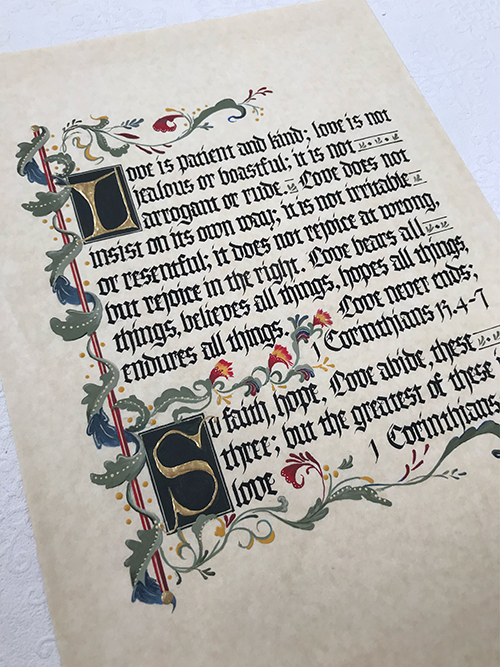 Love is patient and kind; love is not
jealous or boastful; it is not
arrogant or rude. Love does not
insist on its own way; it is not irritable
or resentful; it does not rejoice at wrong,
but rejoice in the right. Love bears all
things, believes all things, hopes all things,
endures all things. Love never ends;
1 Corinthians 13.4-7
So faith, hope, Love abide, these
three; but the greatest of these i
love
1 Corinthians